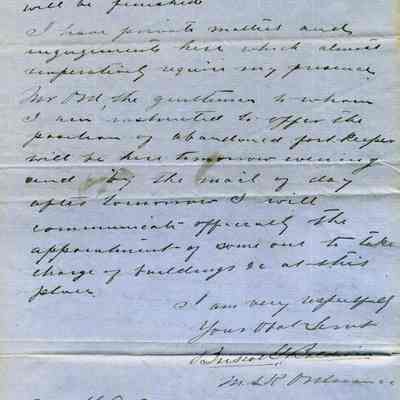 will be finished
I have private matters and
engagements here which almost
imperatively require my presence.
Mr Ord, the gentleman to whom
I am instructed to offer the
position of abandoned post keeper
will be here tomorrow evening
and by the mail of day
after tomorrow I will
communicate officially the
appointment of some one to take
charge of buildings &c at this
place.
I am very respectfully
Your Obt Servt
Briscoe G Baldwin
M S K Ordnance